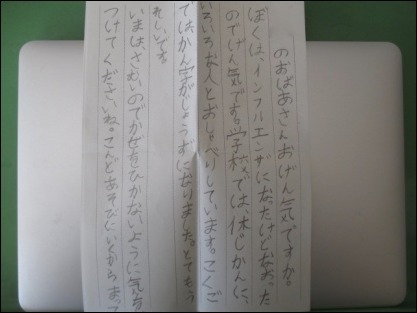 のおばあさんおげん気ですか。
ぼくは、インフルエンザになったけどなおった
のでげん気です。学校では、休みじかんに、
いろいろな人とおしゃべりしています。こくご
ではかん字がじょうずになりました。とてもう
れしいです
いまは、さむいのでかぜをひかないように気を
つけてくださいね。こんどあそびにいくからまって